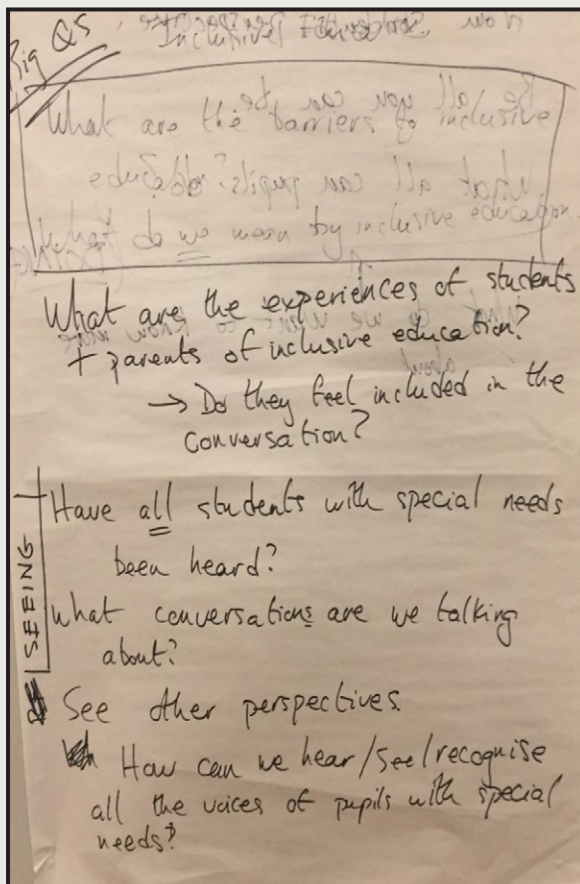 Big Qs
What are the barriers of inclusive
education?
What do we mean by inclusive education
What are the experiences of students
+ parents of inclusive education?
→ Do they feel included in the
conversation?
SEEING
Have all students with special needs
been heard?
What conversations are we talking
about?
See other perspectives.
How can we hear/see/recognise
all the voices of pupils with special
needs?